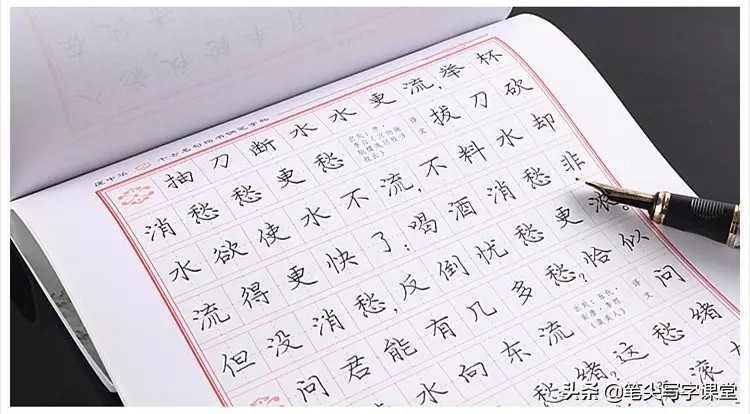 庞中华 千古名句楷书钢笔字帖
抽刀断水水更流,举杯
消愁愁更愁 出处:唐·李白《宣州谢朓楼饯别校书叔云》 译文 拔刀砍
水欲使水不流,不料水却
流得更快了;喝酒消愁非
但没消愁,反倒忧愁更浓。
问君能有几多愁?恰似
水向东流 出处:五代·南唐·李煜《虞美人》 译文 问
愁绪?这愁绪
头条 @笔尖写字课堂